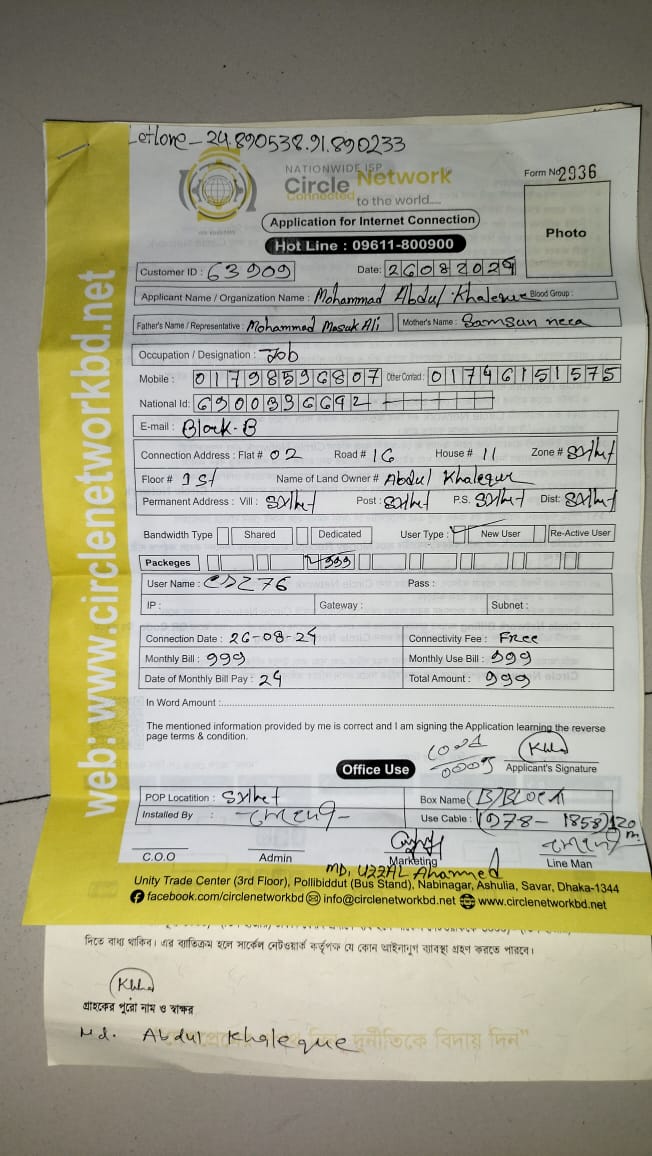 24.890538.91.890233
NATIONWIDE ISP
Circle Network
Connected to the world....
Form No 2936
Application for Internet Connection
Hot Line : 09611-800900
Photo
Customer ID : 63909 Date: 26082024
Applicant Name / Organization Name : Mohammad Abdul Khaleque Blood Group :
Father's Name / Representative : Mohammad Masuk Ali Mother's Name : Samsun
Occupation / Designation : Job
Mobile : 01798596807 Other Contact : 01746151575
National Id:
E-mail : Block-B
Connection Address : Flat # 02 Road # 16 House # 11 Zone # Sylhet
Floor # 1st Name of Land Owner # Abdul Khaleque
Permanent Address : Vill : Sylhet Post : Sylhet P.S. Sylhet Dist: Sylhet
Bandwidth Type Shared Dedicated User Type : New User Re-Active User
Packeges 999
User Name : Pass :
IP : Gateway : Subnet :
Connection Date : 26-08-24 Connectivity Fee : Free
Monthly Bill : 999 Monthly Use Bill : 999
Date of Monthly Bill Pay : 24 Total Amount : 999
In Word Amount :
The mentioned information provided by me is correct and I am signing the Application learning the reverse
page terms & condition.
Office Use
Applicant's Signature
POP Locatition : Sylhet Box Name B/BLOCK
Installed By : Use Cable : (1978-1858) 120 m.
C.O.O Admin Marketing Line Man
MD. UZZAL Ahammed
Unity Trade Center (3rd Floor), Pollibiddut (Bus Stand), Nabinagar, Ashulia, Savar, Dhaka-1344
facebook.com/circlenetworkbd info@circlenetworkbd.net www.circlenetworkbd.net
web: www.circlenetworkbd.net
দিতে বাধ্য থাকিব। এর ব্যতিক্রম হলে সার্কেল নেটওয়ার্ক কর্তৃপক্ষ যে কোন আইনানুগ ব্যবস্থা গ্রহণ করতে পারবে।
গ্রাহকের পুরো নাম ও স্বাক্ষর
Md. Abdul Khaleque
দুর্নীতিকে বিদায় দিন"